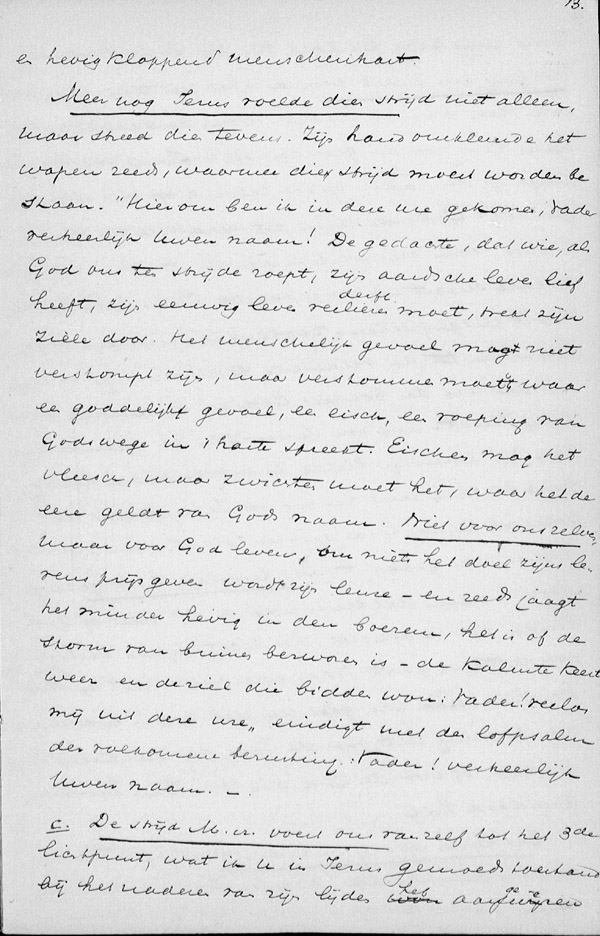 13.
en hevig kloppend menschenhart.
Meer nog Jezus voelde dien strijd niet alleen,
maar streed dien tevens. Zijn hand omklemde het
wapen reeds, waarmee dien strijd moest worden be
slaan. "Hierom ben ik in deze ure gekomen, Vader
verheerlijk Uwen naam! De gedachte, dat wie, als
God ons ten strijde roept, zijn aardsche leven lief
heeft, zijn eeuwig leven verliezen moet, trekt zijn
derft
ziele door. Het menschelijk gevoel mag niet
verstompt zijn, maar verstommen moet 't, waar
een goddelijk gevoel, een eisch, een roeping van
Godswege in 't harte spreekt. Eischen mag het
vleesch, maar zwichten moet het, waar het de
eere geldt van Gods naam. Niet voor ons zelven,
maar voor God leven, om niets het doel zijns le-
vens prijs geven wordt zijn leuze - en reeds jaagt
het minder hevig in den boezem, het is of de
storm van binnen bezworen is - de kalmte keert
weer en de ziel die bidden won: Vader! verlos
mij uit deze ure, eindigt met den lofpsalm
der volkomene berusting: Vader! verheerlijk
Uwen naam. -
c. De strijd M. H. voert ons van zelf tot het 3de
lichtpunt, wat ik u in Jezus gemoedstoestand
bij het naderen van zijn lijden heb aan